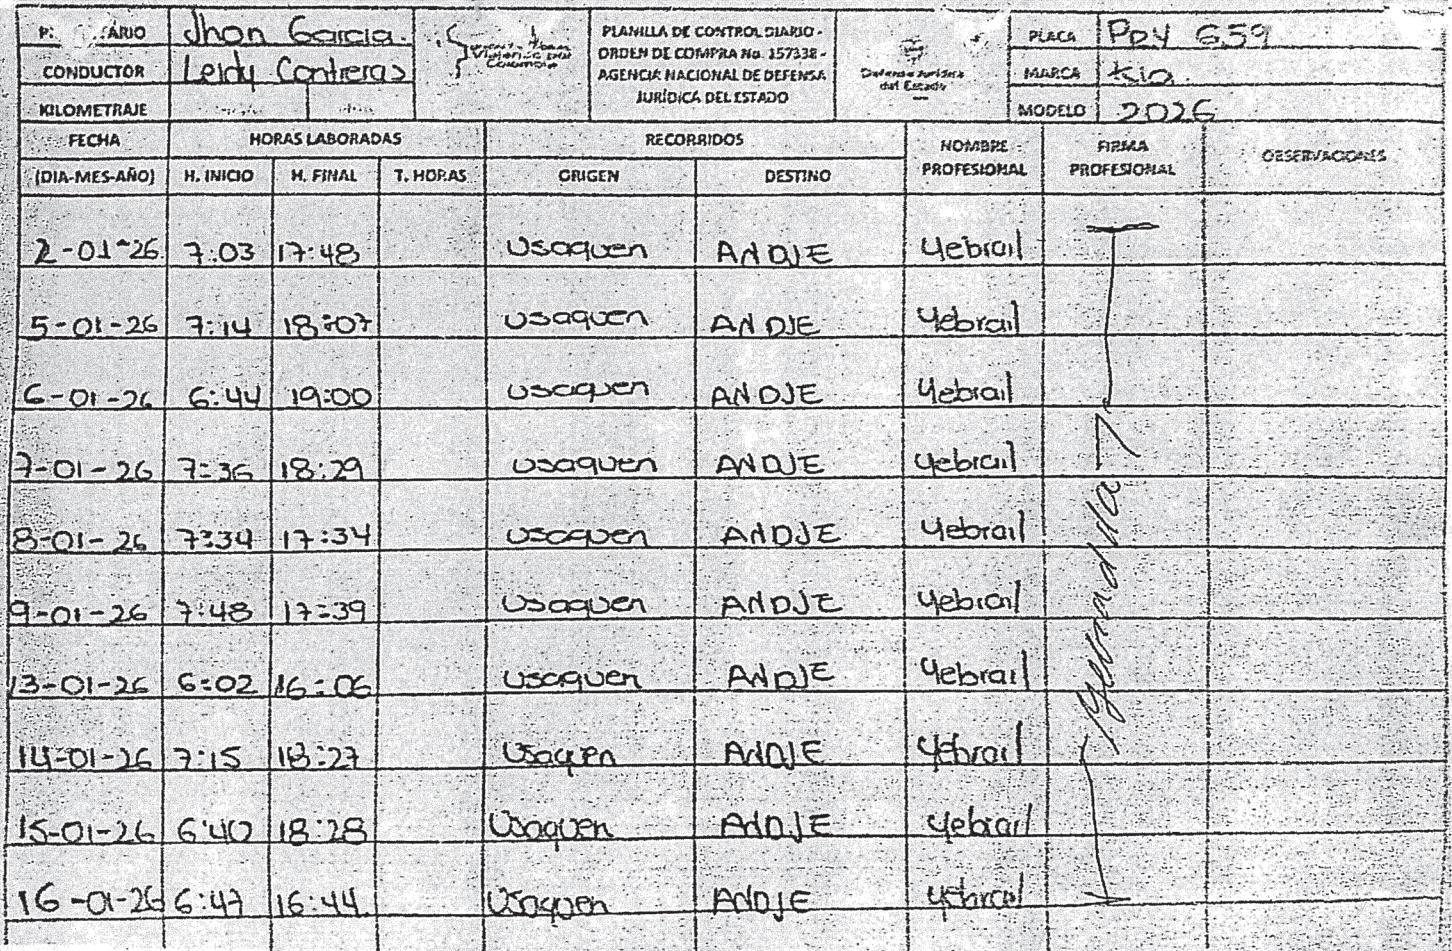 PROPIETARIO Jhon Garcia.
CONDUCTOR Leidy Contreras
KILOMETRAJE
PLANILLA DE CONTROL DIARIO -
ORDEN DE COMPRA No. 157338 -
AGENCIA NACIONAL DE DEFENSA
JURÍDICA DEL ESTADO
Defensa Jurídica
del Estado
PLACA PPY 659
MARCA Kia
MODELO 2026
FECHA HORAS LABORADAS RECORRIDOS NOMBRE PROFESIONAL FIRMA PROFESIONAL OBSERVACIONES
(DIA-MES-AÑO) H. INICIO H. FINAL T. HORAS ORIGEN DESTINO
2-01-26 7:03 17:48 Usaquen ANDJE Yebrail
5-01-26 7:14 18:07 Usaquen ANDJE Yebrail
6-01-26 6:44 19:00 Usaquen ANDJE Yebrail
7-01-26 7:36 18:29 Usaquen ANDJE Yebrail
8-01-26 7:34 17:34 Usaquen ANDJE Yebrail
9-01-26 7:48 17:39 Usaquen ANDJE Yebrail
13-01-26 6:02 16:06 Usaquen ANDJE Yebrail
14-01-26 7:15 18:27 Usaquen ANDJE Yebrail
15-01-26 6:40 18:28 Usaquen ANDJE Yebrail
16-01-26 6:47 16:44 Usaquen ANDJE Yebrail